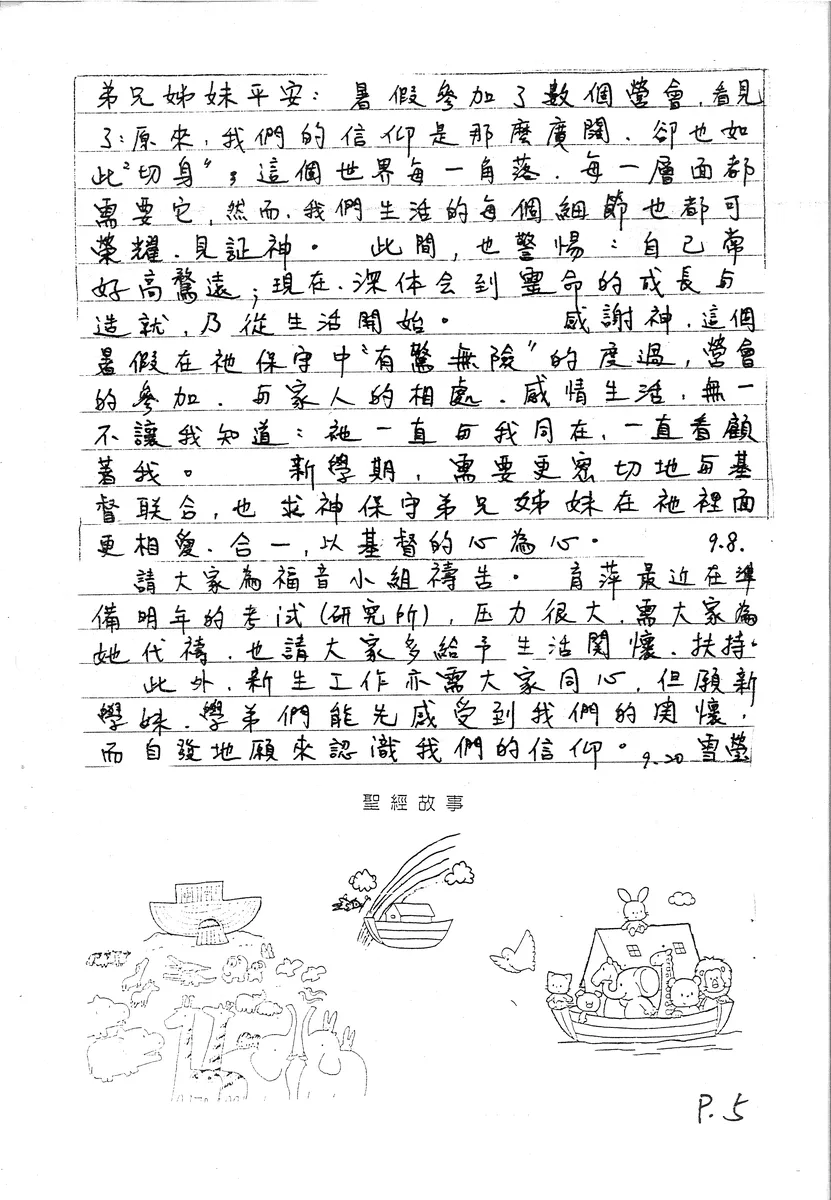 弟兄姊妹平安： 暑假參加了數個營會，看見
了：原來，我們的信仰是那麼廣闊、卻也如
此"切身"，這個世界每一角落、每一層面都
需要它，然而，我們生活的每個細節也都可
榮耀、見証神。 此間，也警惕：自己常
好高騖遠；現在，深体会到靈命的成長与
造就，乃從生活開始。 感謝神，這個
暑假在祂保守中"有驚無險"的度過，營會
的參加、与家人的相處、感情生活，無一
不讓我知道：祂一直与我同在，一直看顧
著我。 新學期，需要更密切地与基
督联合，也求神保守弟兄姊妹在祂裡面
更相愛、合一，以基督的心為心。 9.8.
請大家為福音小組禱告。 育萍最近在準
備明年的考試(研究所)，压力很大，需大家為
她代禱，也請大家多給予生活関懷、扶持。
此外，新生工作亦需大家同心，但願新
學妹、學弟們能先感受到我們的関懷，
而自發地願來認識我們的信仰。 9.20 雪瑩
聖經故事
P.5